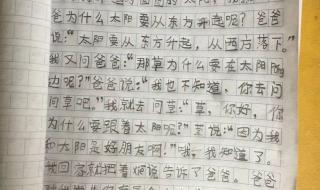 爸为什么太阳要从东方升起呢？爸爸
说：“太阳要从东方升起，从西方落下。”
我又问爸爸：“那草为什么要在太阳的
边呢？”爸爸说：“我也不知道，你去问
问草吧。”我就去问草：“草，你好，你
为什么要跟着太阳呢？”草说：“因为我
和太阳是好朋友啊！”哦，我知道了。
我回家就把着烦说告诉了爸爸，爸爸